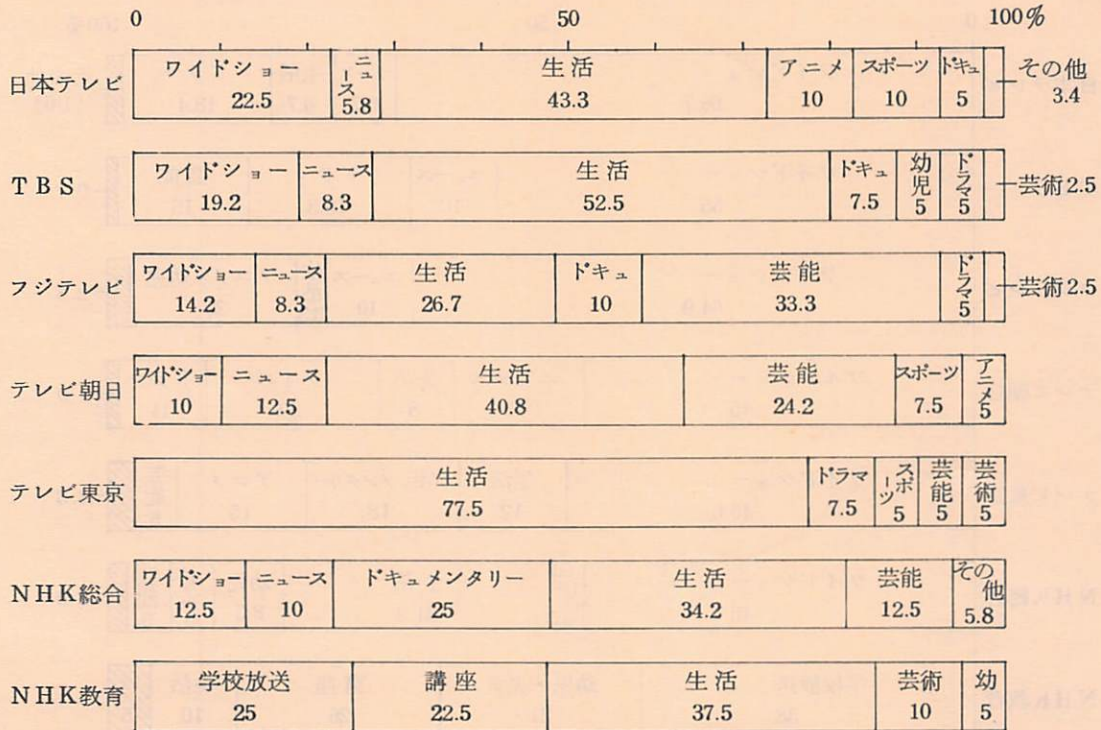 0 50 100%
日本テレビ ワイドショー 22.5 ニュース 5.8 生活 43.3 アニメ 10 スポーツ 10 ドキュ 5 その他 3.4
TBS ワイドショー 19.2 ニュース 8.3 生活 52.5 ドキュ 7.5 幼児 5 ドラマ 5 芸術2.5
フジテレビ ワイドショー 14.2 ニュース 8.3 生活 26.7 ドキュ 10 芸能 33.3 ドラマ 5 芸術2.5
テレビ朝日 ワイドショー 10 ニュース 12.5 生活 40.8 芸能 24.2 スポーツ 7.5 アニメ 5
テレビ東京 生活 77.5 ドラマ 7.5 スポーツ 5 芸能 5 芸術 5
NHK総合 ワイドショー 12.5 ニュース 10 ドキュメンタリー 25 生活 34.2 芸能 12.5 その他 5.8
NHK教育 学校放送 25 講座 22.5 生活 37.5 芸術 10 幼 5